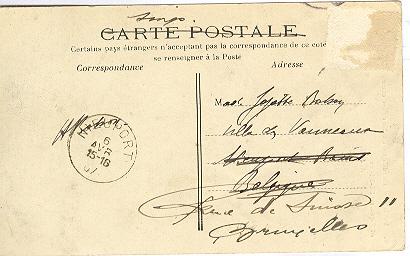 CARTE POSTALE
Certains pays étrangers n'acceptant pas la correspondance de ce coté
se renseigner à la Poste
Correspondance
Adresse
NIEUPORT
6
AVR
15-16
07
Villa des Vanneaux
Nieuport Bains
Belgique
Rue de Suisse 11
Bruxelles